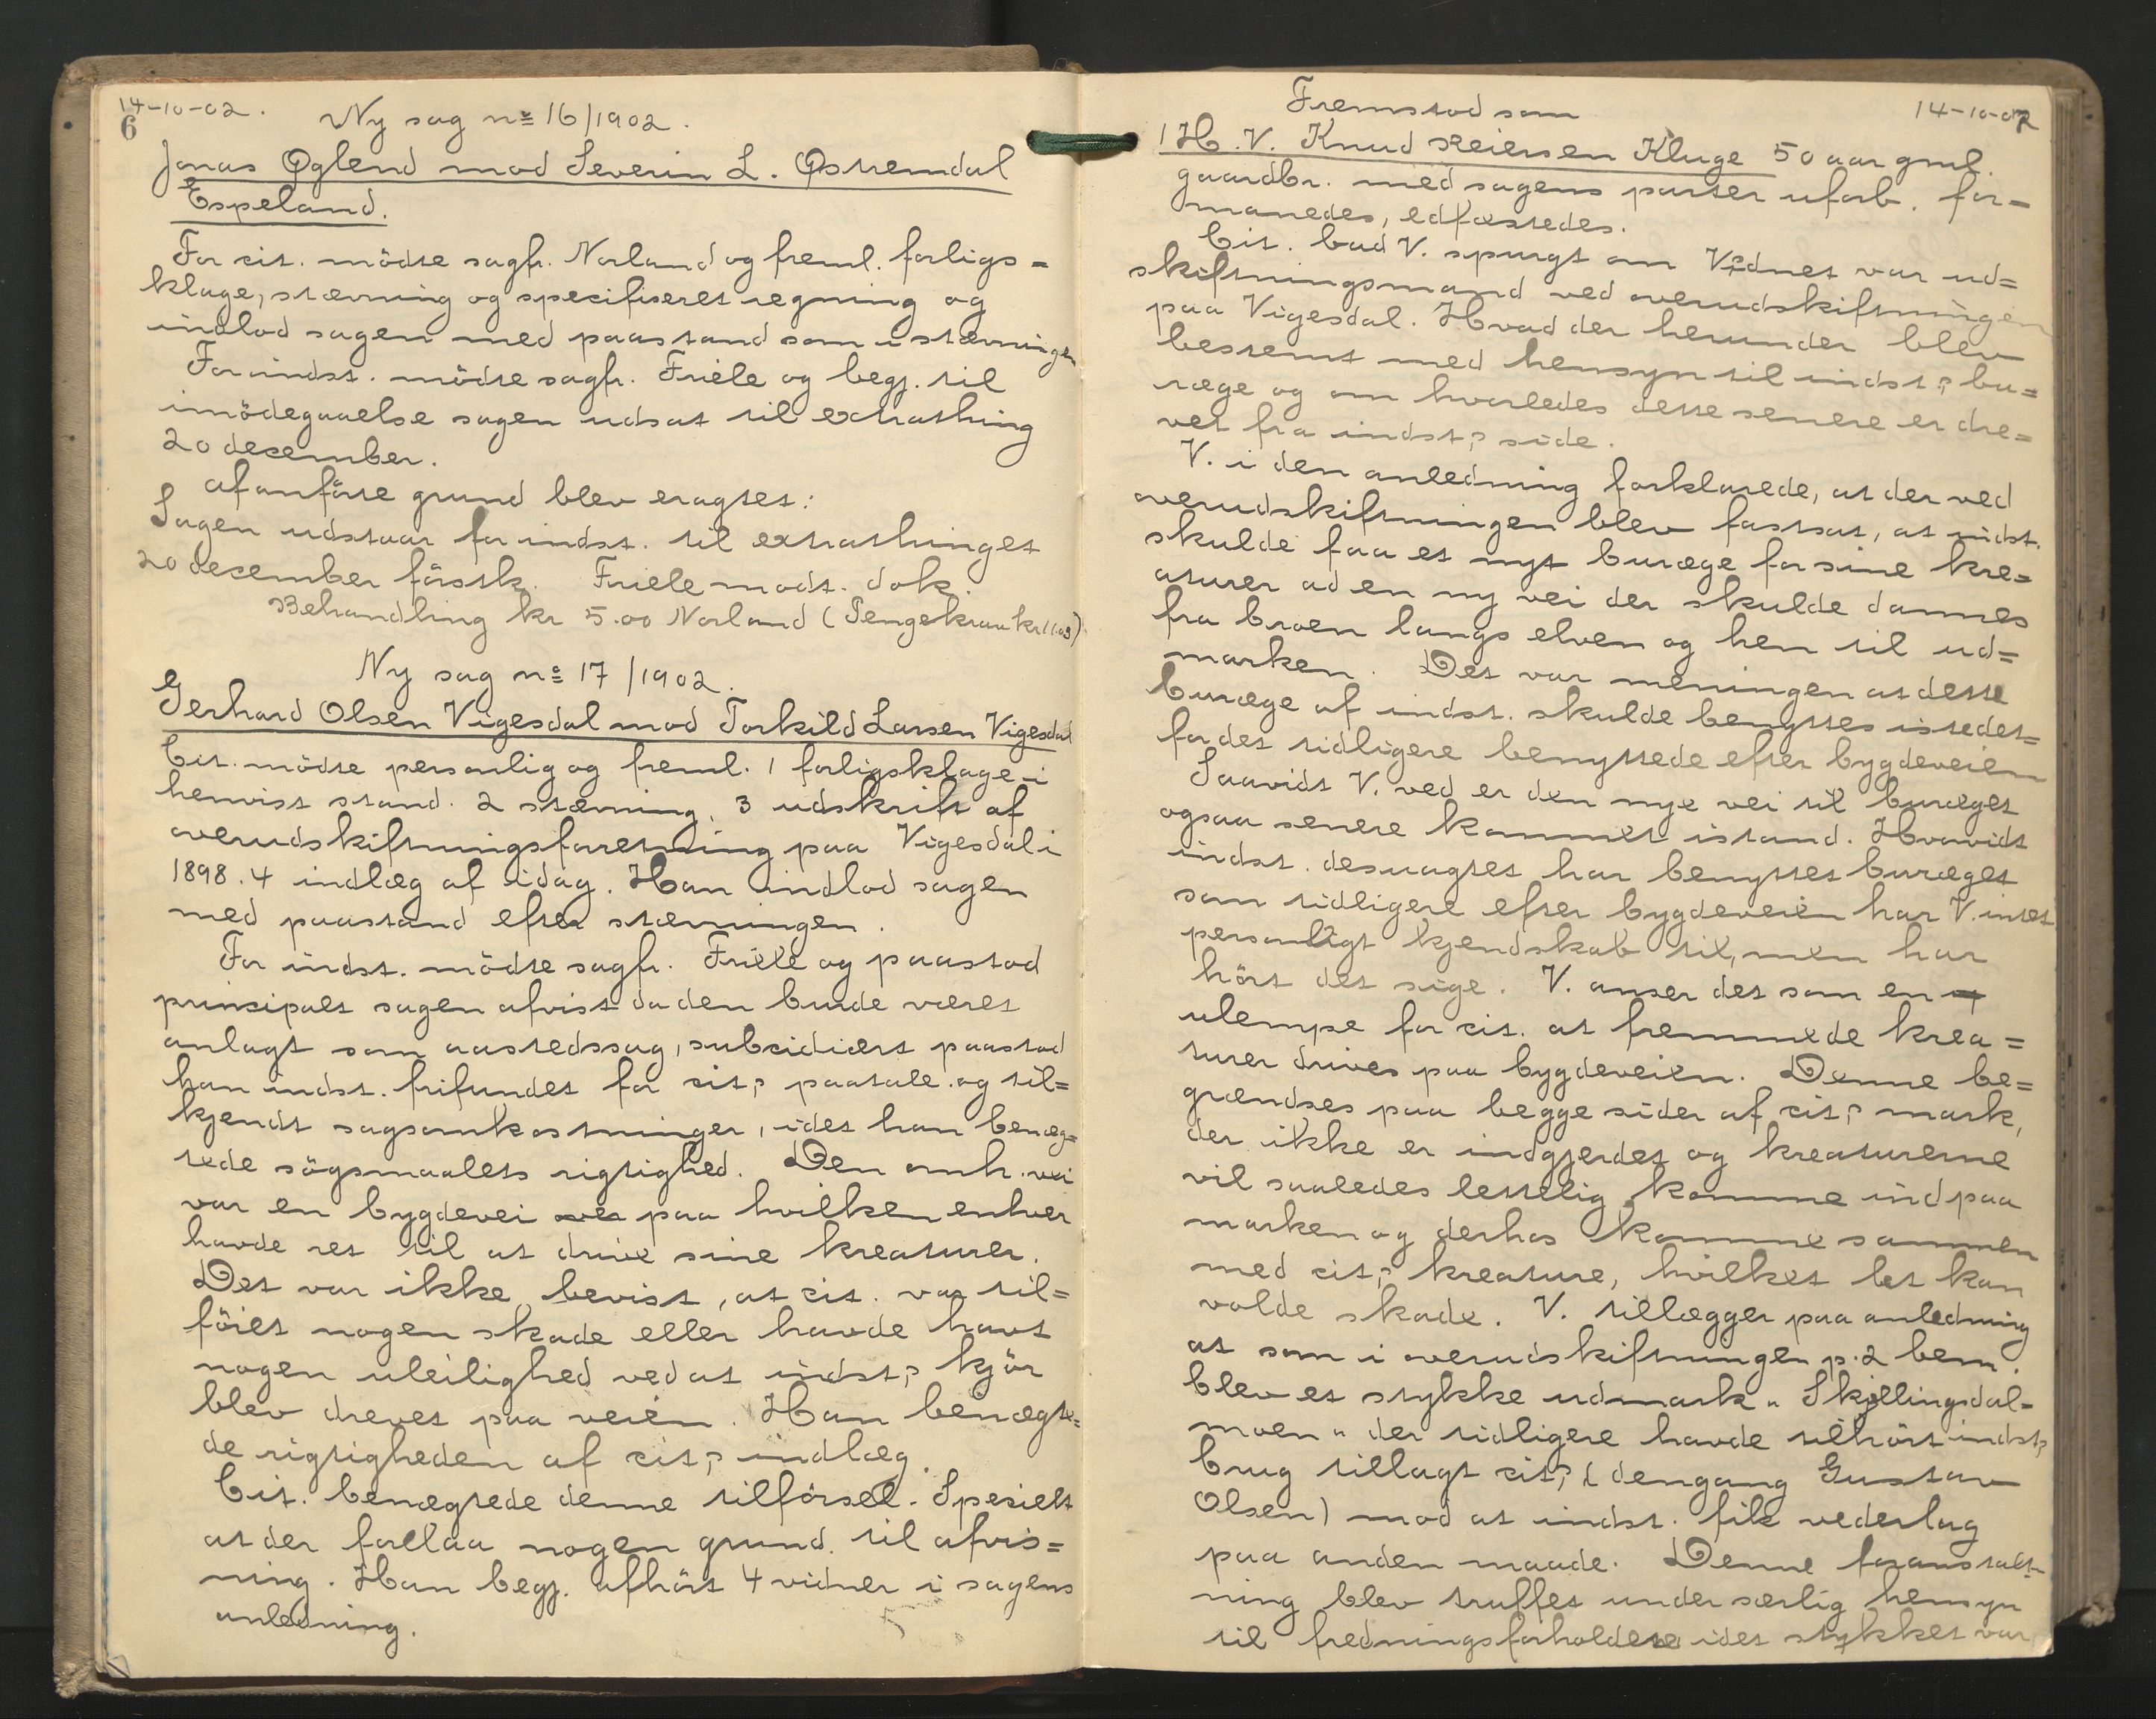 14-10-02.
6
Ny sag no 16/1902.
Jonas Øglend mod Severin L. Østremdal
Espeland.
For cit. mödte sagfr. Norland og freml. forligs=
klage, stævning og specifiseret regning og
indlod sagen med paastand som i stævningen
For indst. mödte sagfr. Friele og begj. til
imödegaaelse sagen udsat til extrathing
20 december.
Af anförte grund blev eragtet:
Sagen udstaar for indst. til extrathinget
20 december förstk. Friele modt. dok.
Behandling kr 5.00 Norland (Pengekrav kr 11.03)
Ny sag no 17/1902.
Gerhard Olsen Vigesdal mod Torkild Larsen Vigesdal
Cit. mödte personlig og freml. 1 forligsklage i
henvist stand. 2 stævning, 3 udskrift af
overudskiftningsforretning paa Vigesdal i
1898. 4 indlæg af idag. Han indlod sagen
med paastand efter stævningen.
For indst. mödte sagfr. Friele og paastod
principalt sagen afvist da den burde været
anlagt som aastedssag, subsidiært paastod
han indst. frifundet for cits paatale og til=
kjendt sagsomkostninger, idet han benæg=
tede sögsmaalets rigtighed. Den omh. vei
var en bygdevei paa hvilken enhver
havde ret til at drive sine kreaturer.
Det var ikke bevist, at cit. var til=
föiet nogen skade eller havde havt
nogen uleilighed ved at indsts kjör
blev drevet paa veien. Han benægte=
de rigtigheden af cits indlæg.
Cit. benægtede denne tilförsel. Spesielt
at der forelaa nogen grund til afvis=
ning. Han begj. afhört 4 vidner i sagens
anledning.
14-10-02
7
Fremstod som
1 H.V. Knud Reiersen Kluge 50 aar gml.
gaardbr. med sagens parter uforb. for=
manedes, edfæstedes.
Cit. bad V. spurgt om Vidnet var ud=
skiftningsmand ved overudskiftningen
paa Vigesdal. Hvad der herunder blev
bestemt med hensyn til indsts bu=
ræge og om hvorledes dette senere er dre=
vet fra indsts side.
V. i den anledning forklarede, at der ved
overudskiftningen blev fastsat, at indst.
skulde faa et nyt buræge for sine kre=
aturer ad en ny vei der skulde dannes
fra broen langs elven og hen til ud=
marken. Det var meningen at dette
buræge af indst. skulde benyttes istedet=
for det tidligere benyttede efter bygdeveien
Saavidt V. ved er den nye vei til buræget
ogsaa senere kommet istand. Hvorvidt
indst. desuagtet har benyttet buræget
som tidligere efter bygdeveien har V. intet
personligt kjendskab til, men har
hört det sige. V. anser det som en
ulempe for cit. at fremmede krea=
turer drives paa bygdeveien. Denne be=
grændses paa begge sider af cits mark,
der ikke er indgjerdet og kreaturerne
vil saaledes lettelig komme ind paa
marken og derhos komme sammen
med cits kreature, hvilket let kan
volde skade. V. tillægger paa anledning
at som i overudskiftningen p. 2 bem.
blev et stykke udmark "Skjellingsdal-
moen" der tidligere havde tilhört indsts
brug tillagt cits (dengang Gustav
Olsen) mod at indst. fik vederlag
paa anden maade. Denne foranstalt-
ning blev truffet under særlig hensyn
til fredningsforholdene idet stykket var